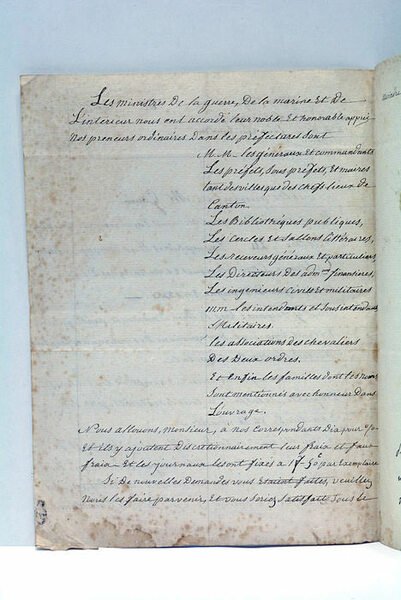 Les ministres De la guerre, De la marine Et De
L'interieur nous ont accordé leur noble Et honorable appui
Nos preneurs ordinaires Dans les prefectures sont
M.M. les généraux et commandants
Les préfets, sous préfets, Et maires
tant des villes que des chefs lieux de
Canton.
Les Bibliothèques publiques,
Les Cercles et Sallons littéraires,
Les receveurs généraux Et particuliers
Les Directeurs Des adm.ons financières,
Les ingenieurs Civils et militaires
M.M. les intendants et sous intendans
Militaires.
les associations des chevaliers
Des Deux ordres.
Et Enfin les familles dont les noms
Sont mentionnés avec honneur Dans
L'ouvrage.
Nous allouons, Monsieur, à nos Correspondants Dix pour
Et ils y ajoutent Discretionnairement leur frais et faux
frais Et les journaux les ont fixés à 1f 50c par Exemplaire
Si De nouvelles Demandes vous Etaient faites, veuillez
Nous les faire parvenir, Et vous seriez satisfait Sous le